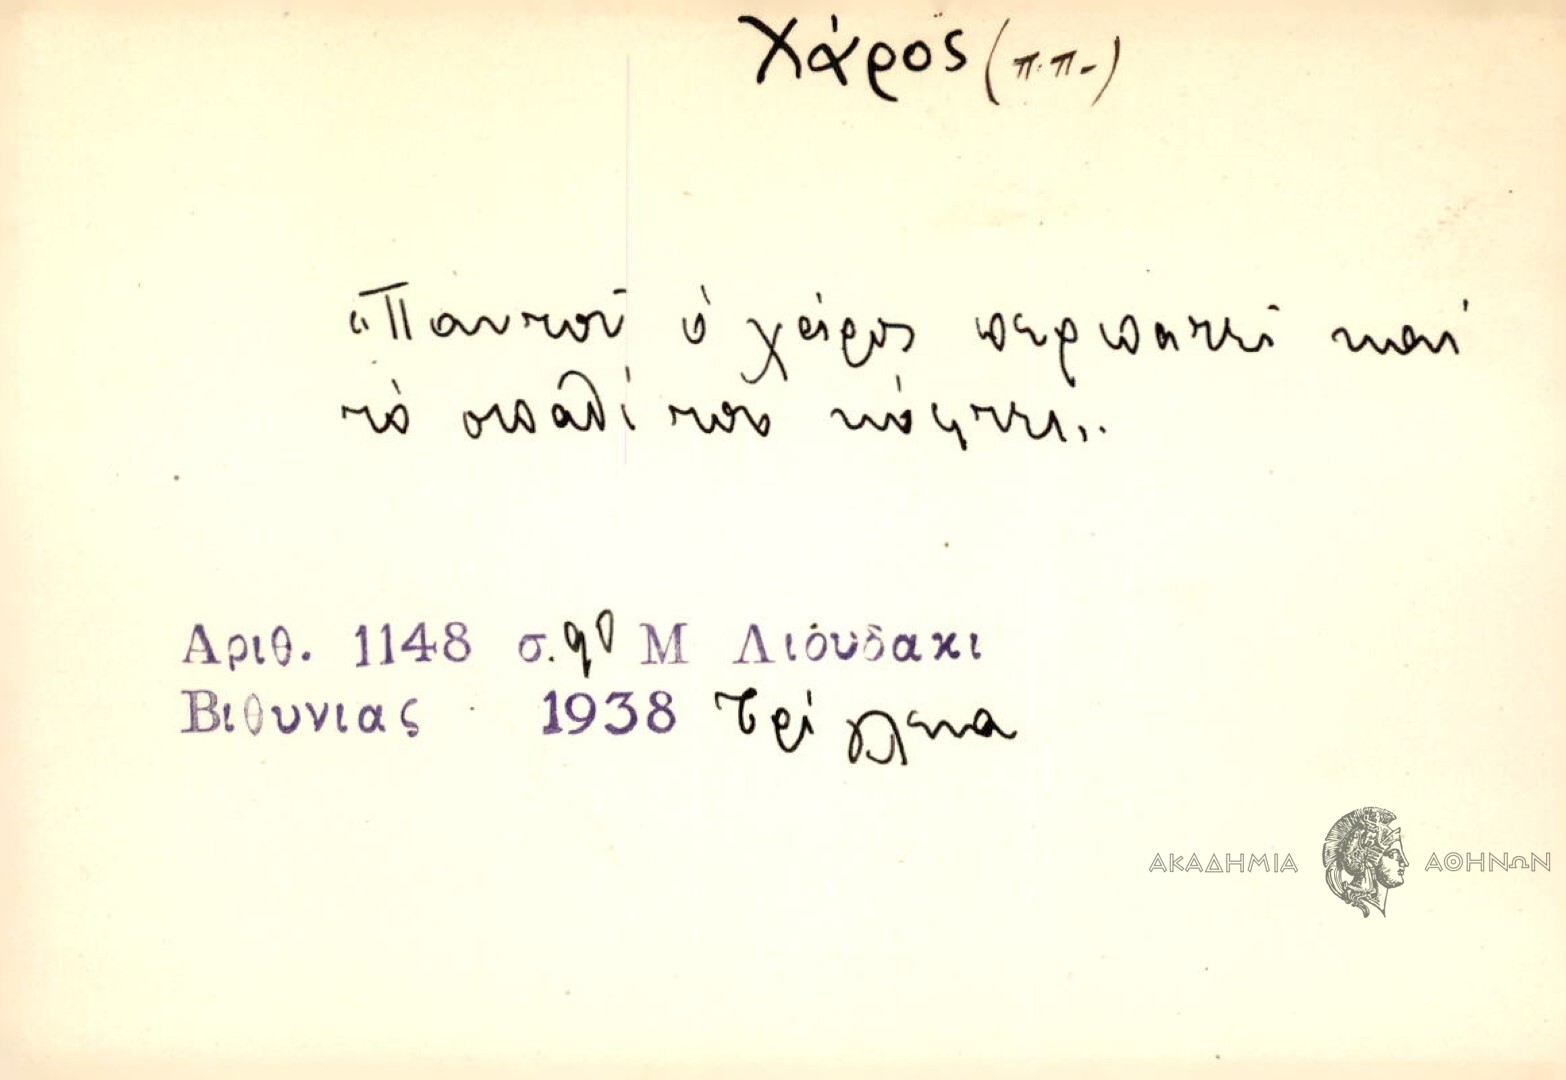 Χάρος (π.π.)
«Παντοῦ ὁ χάρος περπατεῖ καί
τὸ σπαθί του κόφτει».
Αριθ. 1148 σ. 90 Μ Λιουδακι
Βιθυνιας 1938 Τρίγλεια
ΑΚΑΔΗΜΙΑ ΑΘΗΝΩΝ